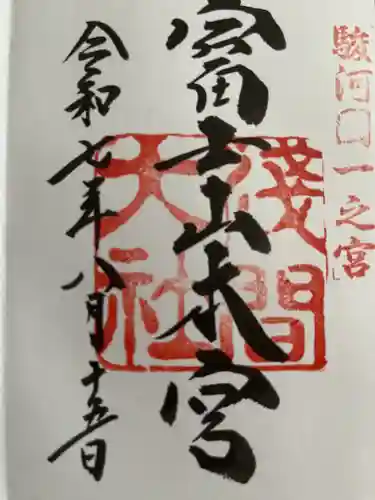 駿河国一之宮
富士山本宮
淺間大社
令和七年八月十五日